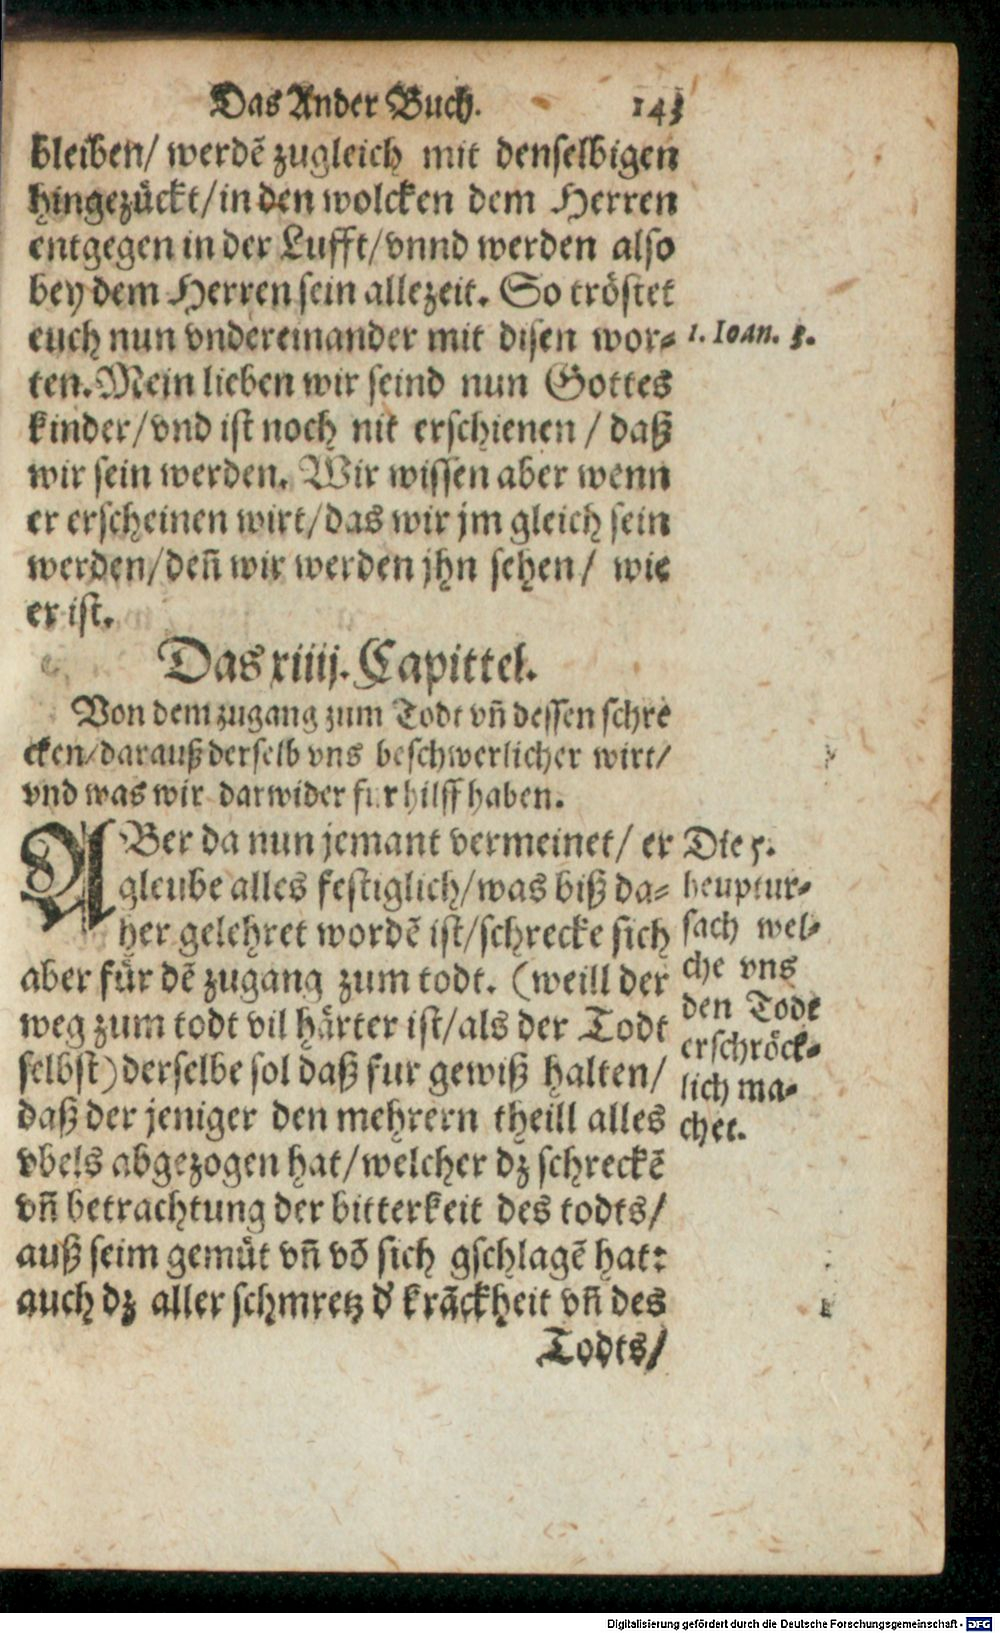 Das Ander Buch. 143
bleiben/ werdẽ zugleich mit denselbigen
hingezückt/in den wolcken dem Herren
entgegen in der Lufft/vnnd werden also
bey dem Herren sein allezeit. So tröstet
euch nun vndereinander mit disen wor-
ten. Mein lieben wir seind nun Gottes
kinder/vnd ist noch nit erschienen / daß
wir sein werden. Wir wissen aber wenn
er erscheinen wirt/das wir jm gleich sein
werden/deñ wir werden jhn sehen/ wie
er ist.
1. Ioan. 3.
Das xiiij. Capittel.
Von dem zugang zum Todt vñ dessen schre
cken/darauß derselb vns beschwerlicher wirt/
vnd was wir darwider fur hilff haben.
ABer da nun jemant vermeinet/ er
gleube alles festiglich/was biß da-
her gelehret wordẽ ist/schrecke sich
aber für dẽ zugang zum todt. (weill der
weg zum todt vil härter ist/als der Todt
selbst) derselbe sol daß fur gewiß halten/
daß der jeniger den mehrern theill alles
vbels abgezogen hat/welcher dz schreckẽ
vñ betrachtung der bitterkeit des todts/
auß seim gemüt vñ võ sich gschlagẽ hat:
auch dz aller schmretz d' krãckheit vñ des
Todts/
Die 5.
heuptur-
sach wel-
che vns
den Todt
erschröck-
lich ma-
chet.
Digitalisierung gefördert durch die Deutsche Forschungsgemeinschaft - DFG